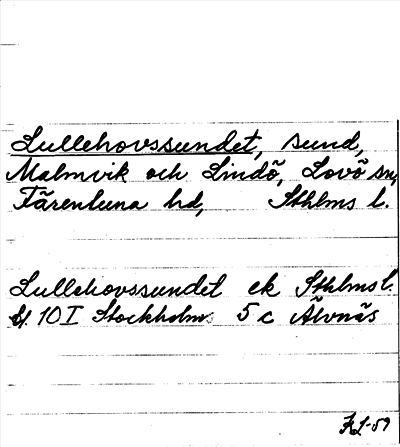 Lullehovssundet, sund,
Malmvik och Lindö, Lovö sn,
Färentuna hd, Sthlms l.
Lullehovssundet ek Sthlms l.
bl. 10 I Stockholm. 5 c Älvnäs
KL-59